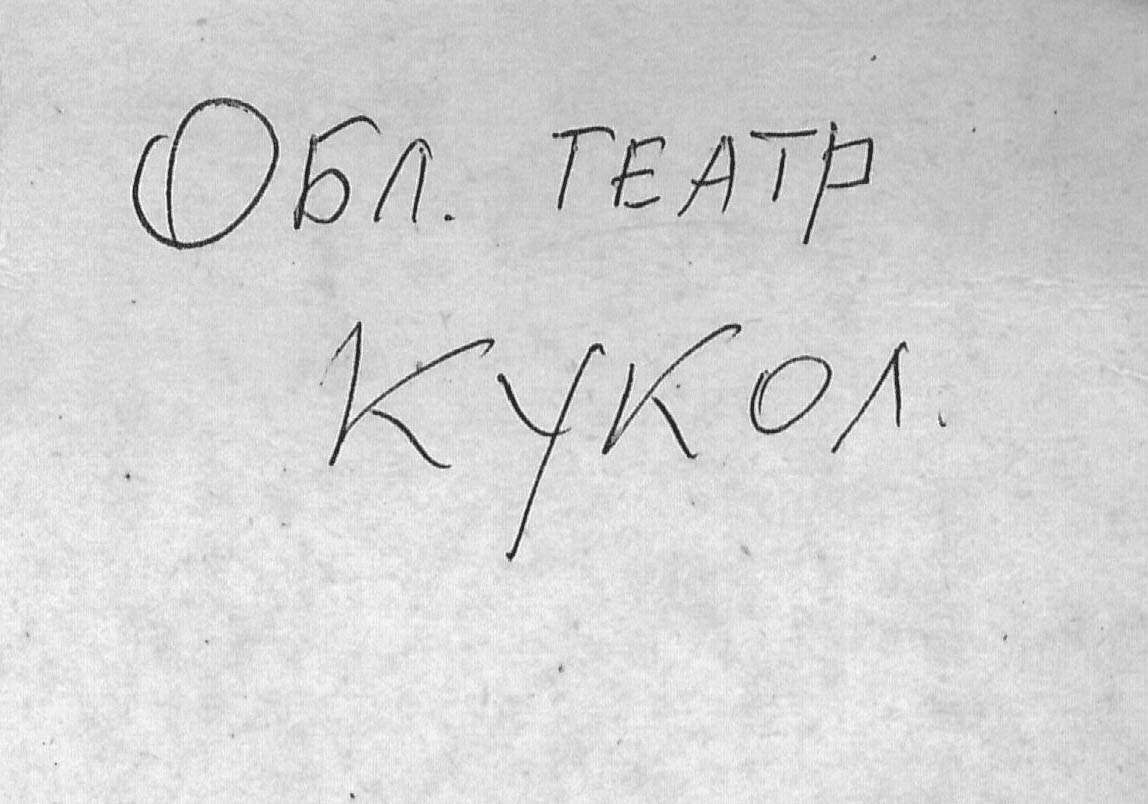 Обл. ТЕАТР
КУКОЛ.